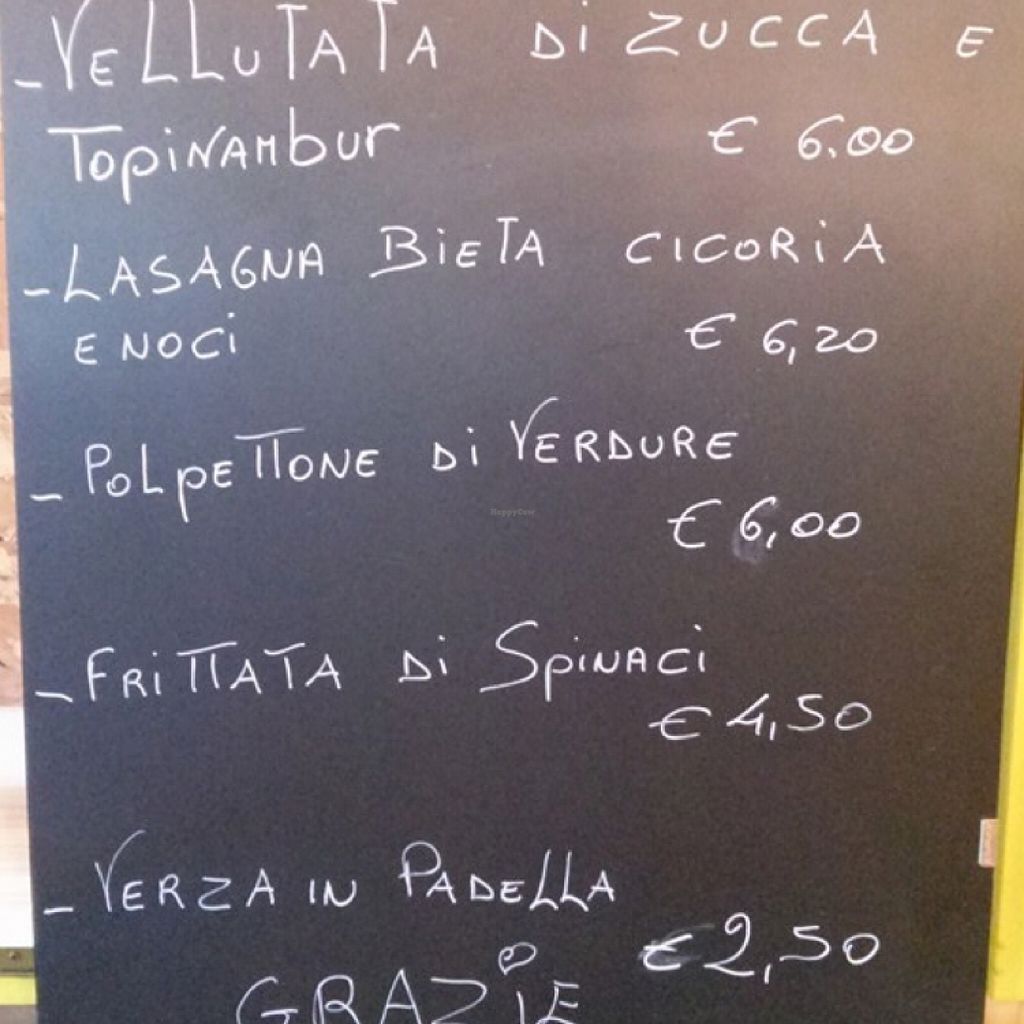 - VELLUTATA Di ZUCCA E
TopiNAMbur € 6.00
- LASAGNA BiETA CICORiA
E NOCi € 6,20
- POLpETTONE Di VERDURE
€ 6,00
HappyCow
- FRiTTATA Di SpiNACi
€ 4,50
- VERZA IN PADELLA
€ 2,50
GRAZiE